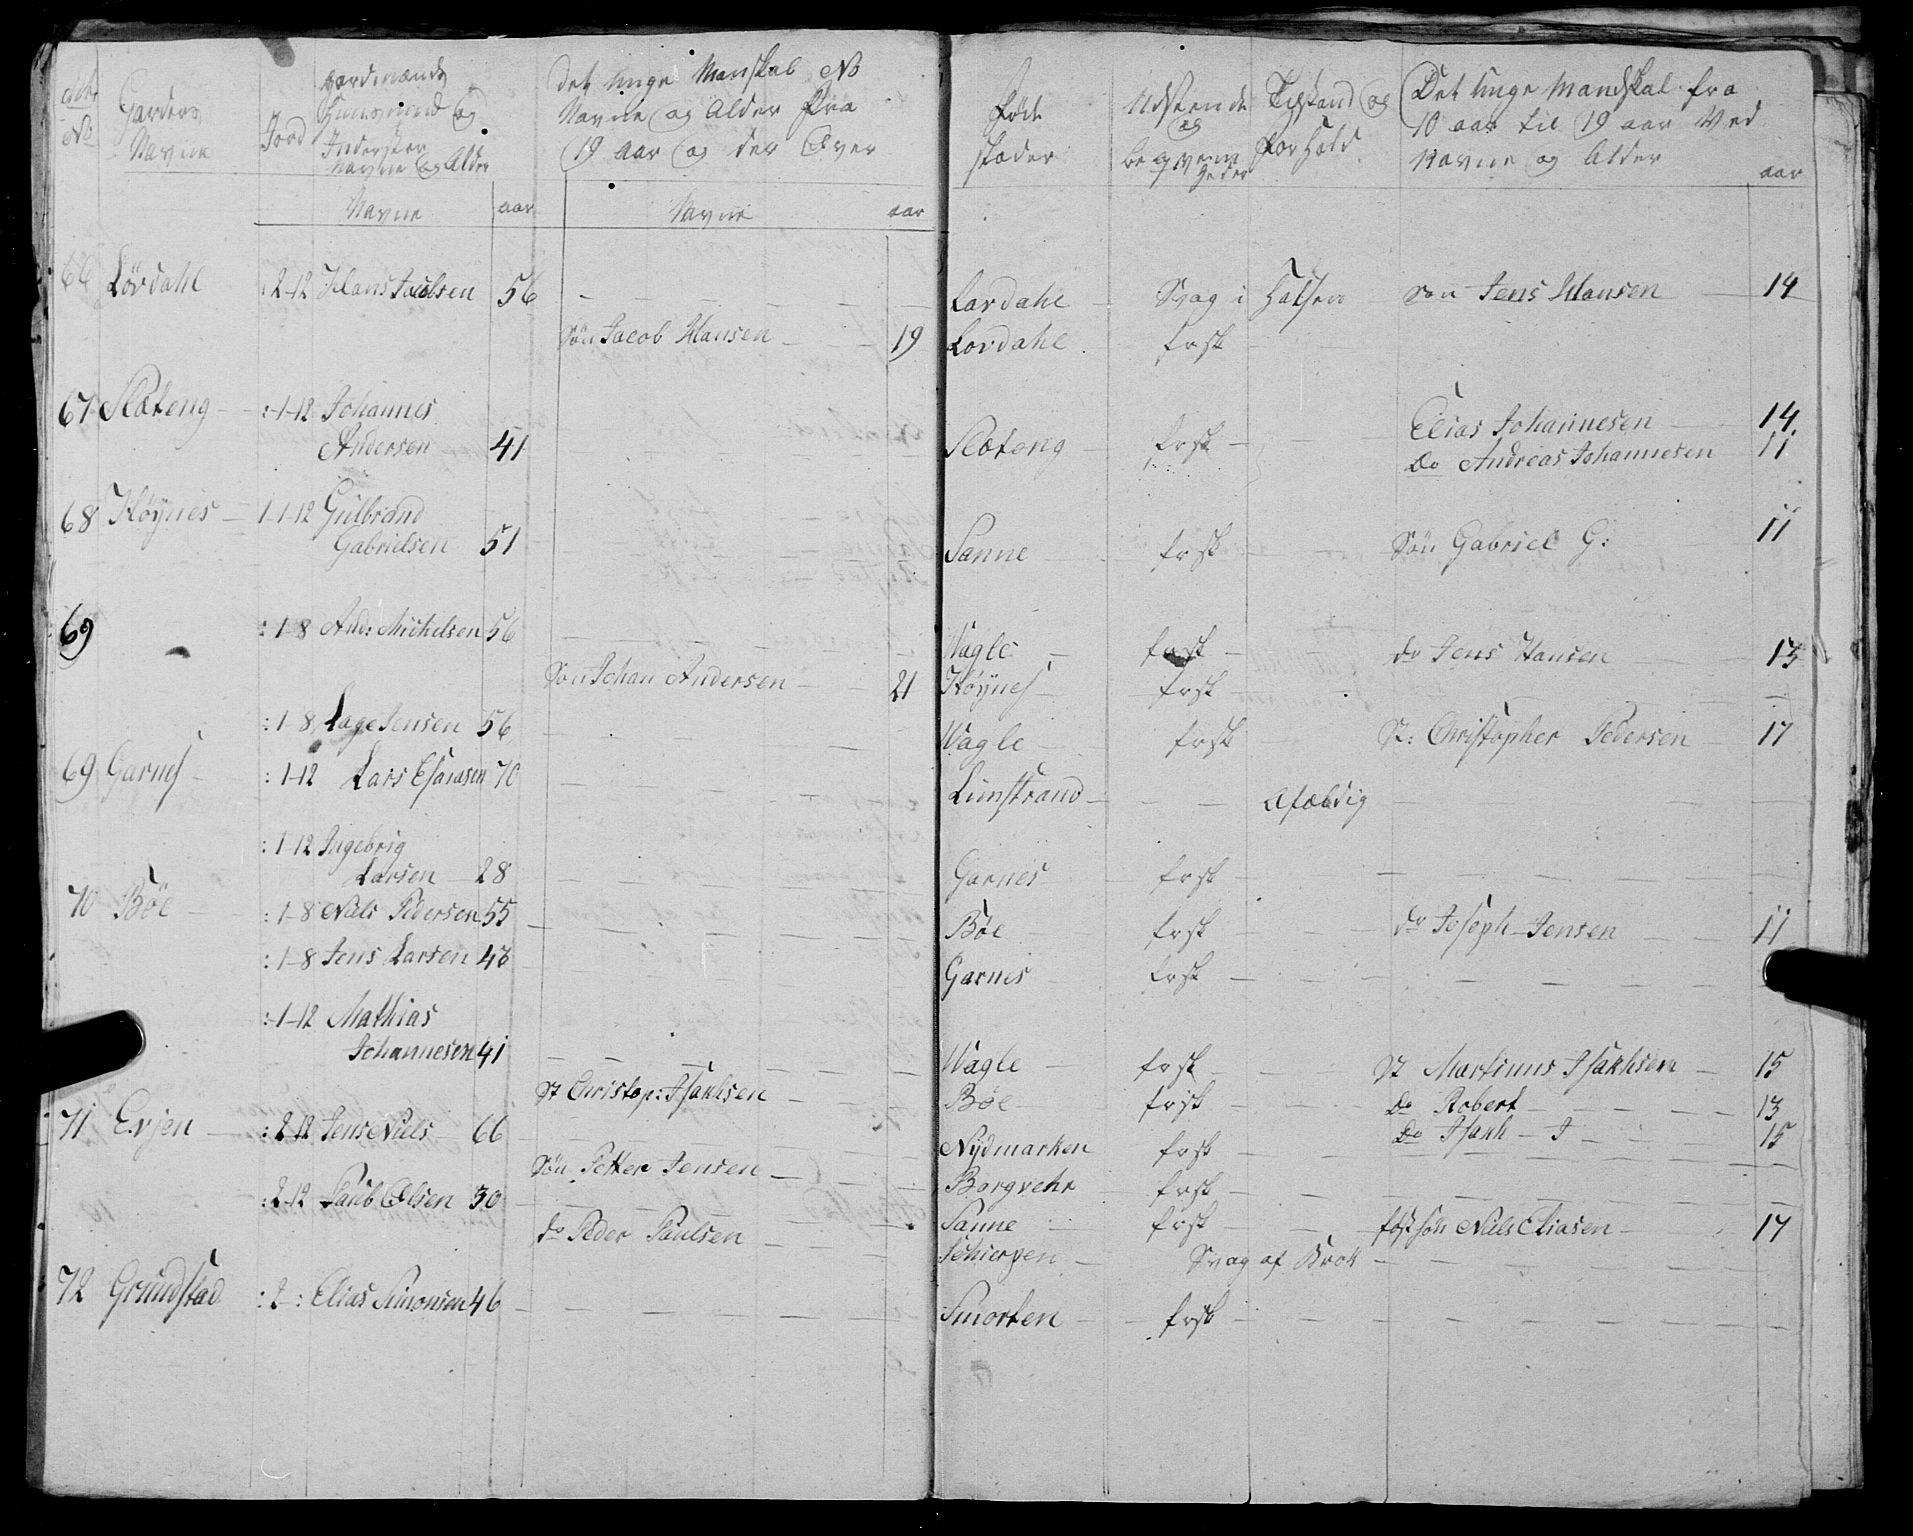 No
Gardens
Navne
Jord
Gardmænds
Huusmænd og
Inderster
Navne og Alder
Det Unge Manskab No
Navne og Alder fra
19 aar og der Over
Navne aar Navne aar
Føde
stæder
Udseende
og
beqvem
heder
Tilstand og
Forhold
Det Unge Mandskab fra
10 aar til 19 aar Ved
Navne og Alder
aar
66 Lördahl :2-12 Hans Jacobsen 56 Lardahl Svag i Hatsen Søn Jens Hansen 14
Søn Jacob Hansen 19 Lordahl frsk
67 Slæteng :-1-12 Johannes
Andersen 41 Slæteng frsk
Elias Johannesen 14
do Andreas Johannesen 11
68 Høynes 1-1-12 Gulbrand
Gabrielsen 51 Sanne frsk Søn Gabriel G: 11
69 :1-8 And: Michelsen 56 Vagle frsk do Jens Hansen 13
Søn Johan Andersen 21 Høynes frsk
:1-8 Lage Jensen 56 Vagle frsk St: Christopher Pedersen 17
69 Garnes :1-12 Lars Esaiasen 70 Limstrand Afældig
:1-12 Ingebrig
Larsen 28 Garnes frsk
70 Böe :1-8 Niels Pedersen 55 Böe frsk do Joseph Jensen 11
:1-8 Jens Larsen 43 Garnes frsk
:-1-12 Mathias
Johannesen 41 Vagle frsk St Martinus Isakhsen 15
St Christop: Isakhsen Böe frsk do Robert 13
71 Evjen :2-12 Jens Niels 66 Nÿdmarken frsk do Isakh J 15
Søn Petter Jensen Borgvehr frsk
:2-12 Paul Olsen 30 Sanne frsk fostsøn Niels Eliasen 17
do Peder Paulsen Schierpen Svag af Brok
72 Grundstad :2-: Elias Simonsen 46 Smorten frsk